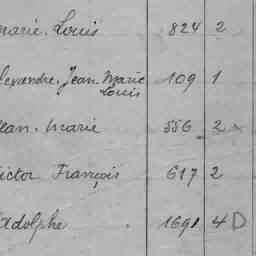 marie. Louis 824 2
lexandre. Jean. Marie 109 1
Louis
Jean. Marie 556 2
ictor François 617 2
Adolphe 1691 4 D